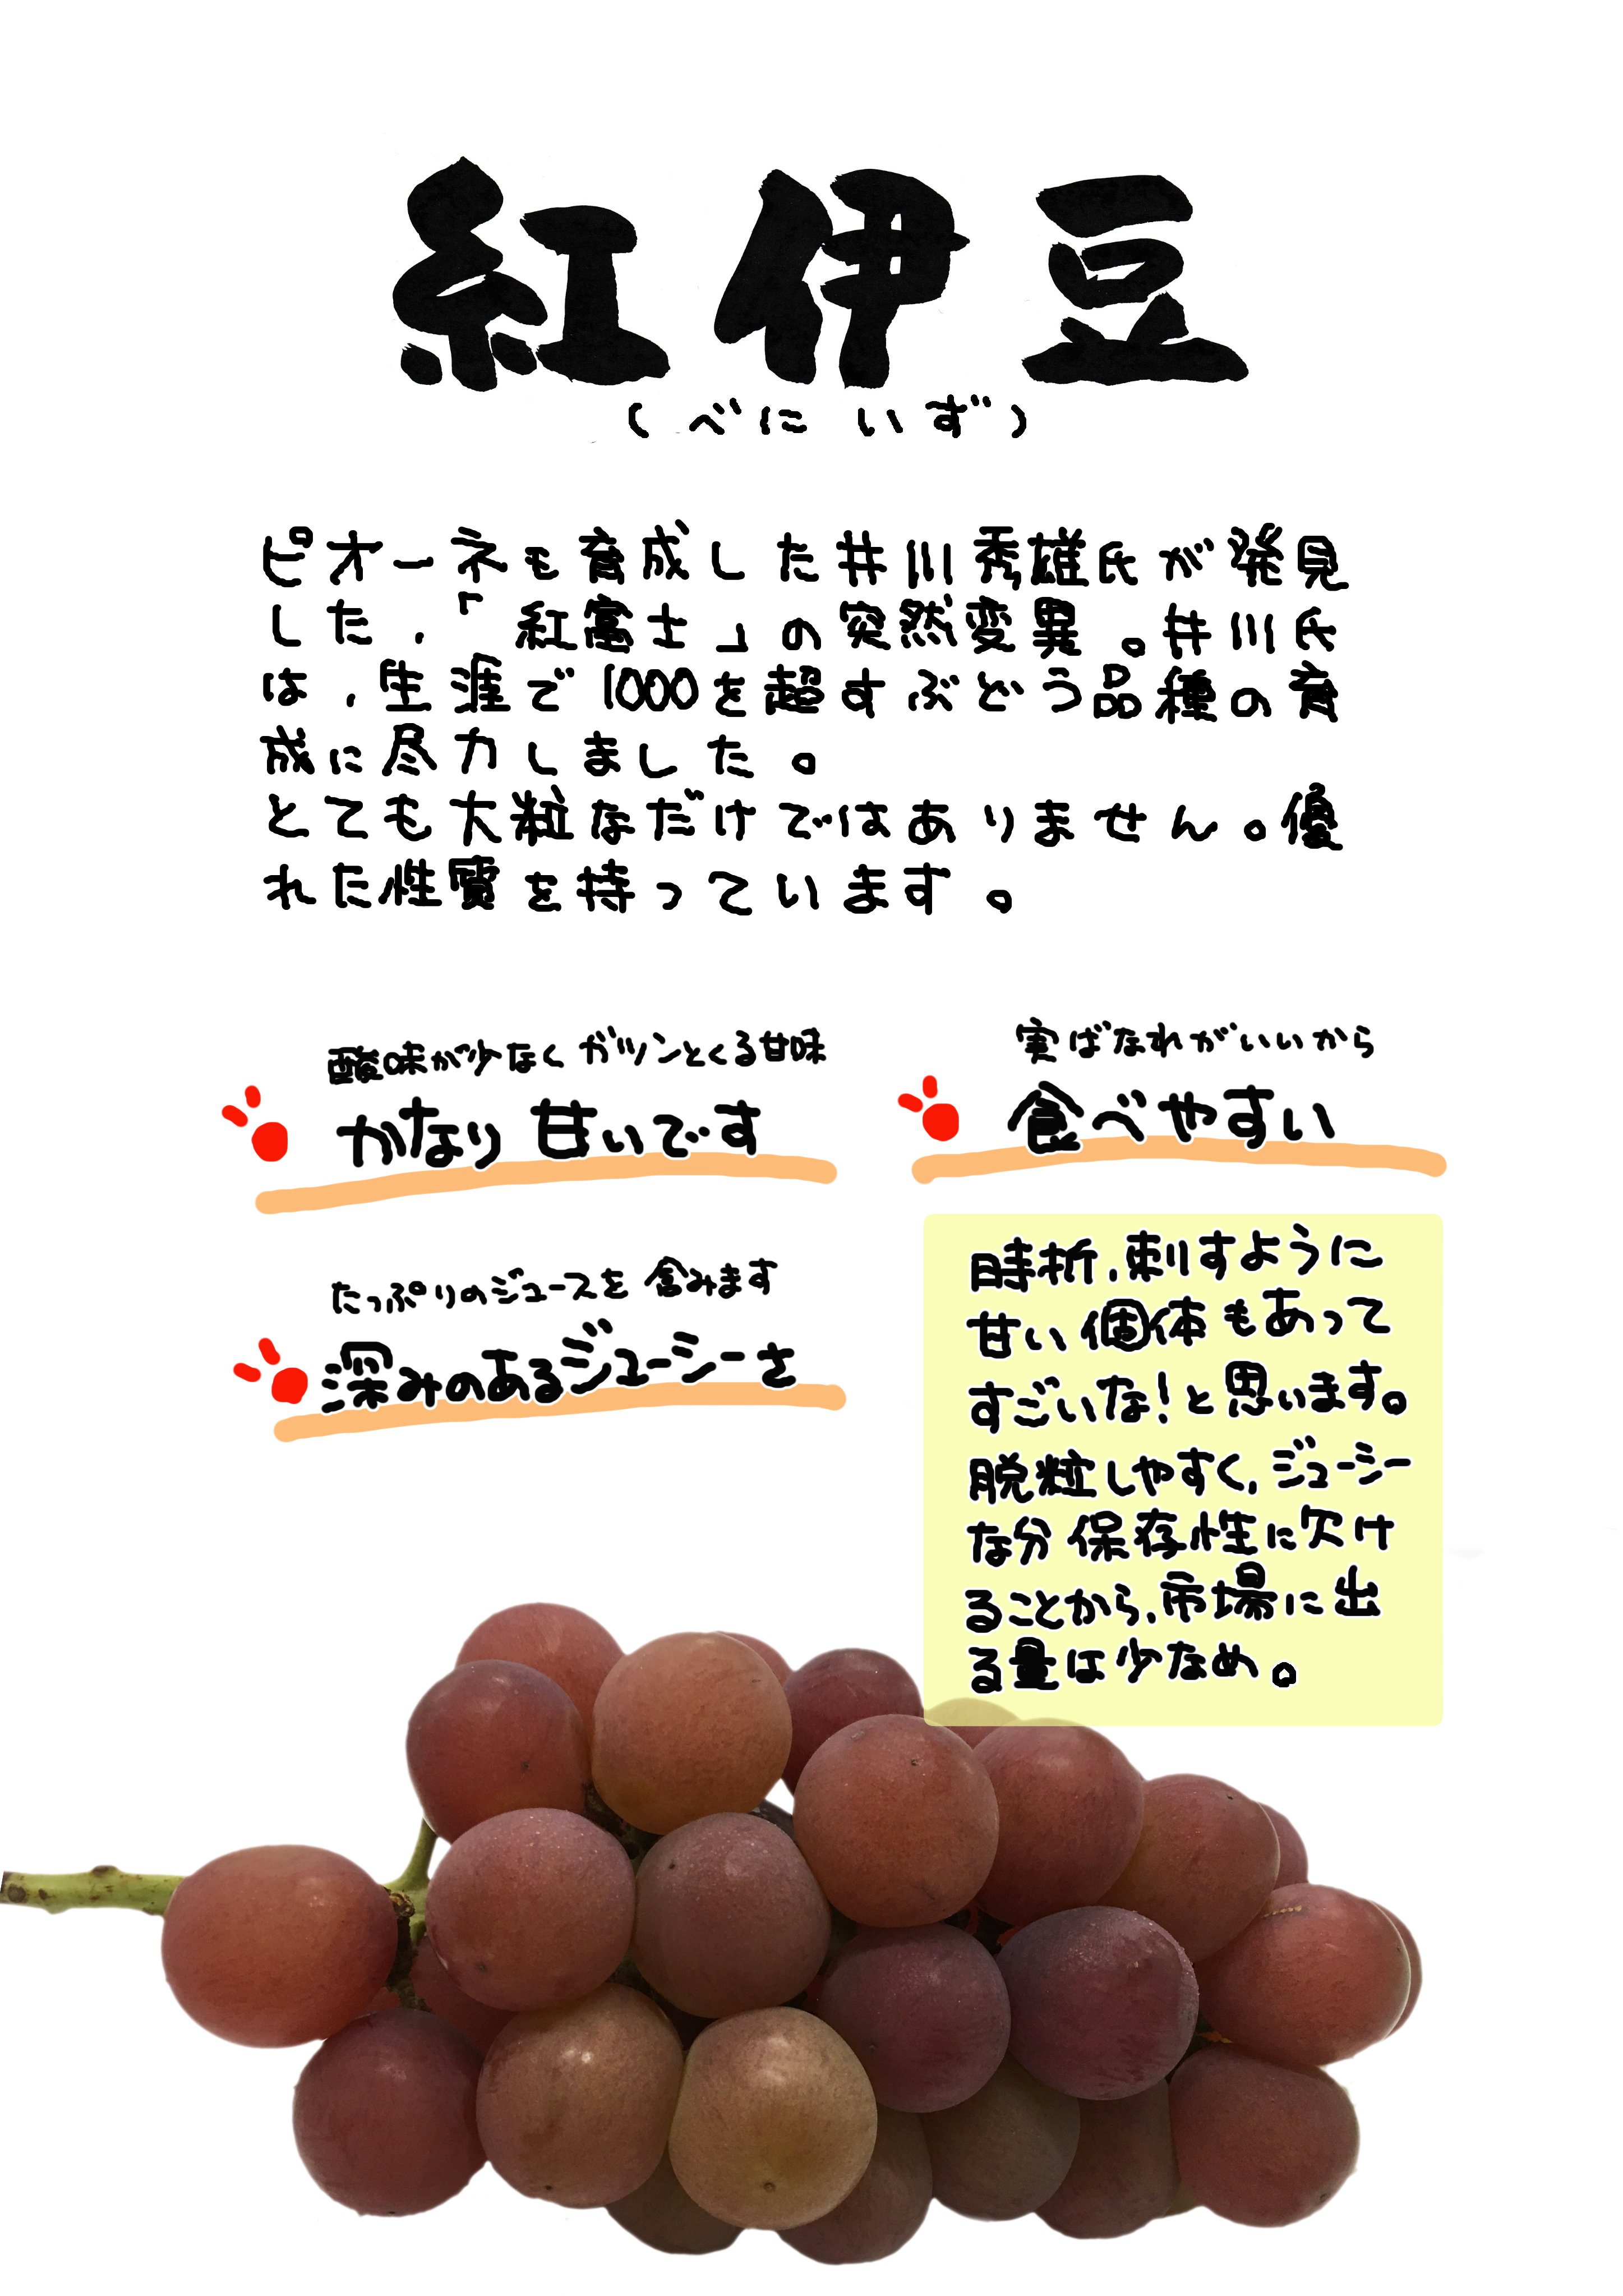 紅伊豆
(べにいず)
ピオーネも育成した井川秀雄氏が発見
した、「紅富士」の突然変異。井川氏
は、生涯で1000を超すぶどう品種の育
成に尽力しました。
とても大粒なだけではありません。優
れた性質を持っています。
酸味が少なくガツンとくる甘味
かなり甘いです
たっぷりのジュースを含みます
深みのあるジューシーさ
実ばなれがいいから
食べやすい
時折、刺すように
甘い個体もあって
すごいな!と思います。
脱粒しやすく、ジューシー
な分保存性に欠け
ることから、市場に出
る量は少なめ。